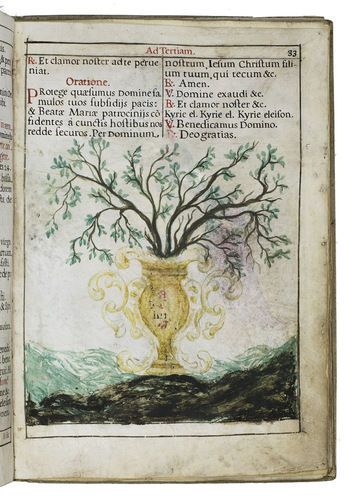 Ad Tertiam.
83
℟. Et clamor noster ad te perue
niat.
Oratione.
Protege quæsumus Domine fa
mulos tuos subsidijs pacis:
& Beatæ Mariæ patrocinijs cō
fidentes à cunctis hostibus nos
redde securos. Per Dominum
nostrum, Iesum Christum fili
um tuum, qui tecum &c.
℟. Amen.
℣. Domine exaudi &c.
℟. Et clamor noster &c.
Kyrie el. Kyrie el. Kyrie eleison.
℣. Benedicamus Domino.
℟. Deo gratias.